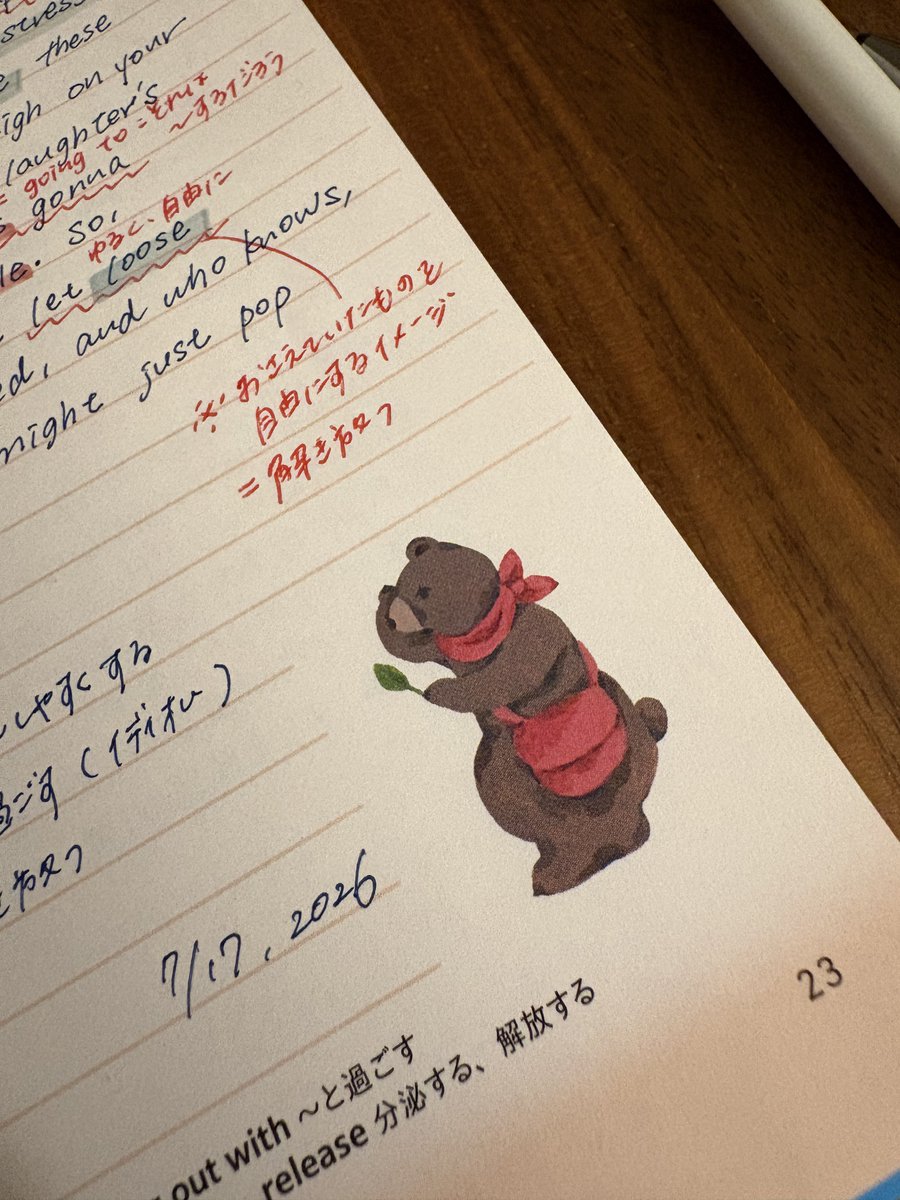 stress
these
igh on your
laughter's
= going to = それは
〜するだろう
gonna
ゆるく、自由に
le. So,
let loose
ed, and who knows,
might just pop
※おさえていたものを
自由にするイメージ
=解き放つ
しやすくする
過ごす(イディオム)
き放つ
7/17, 2026
23
out with 〜と過ごす
release 分泌する、解放する